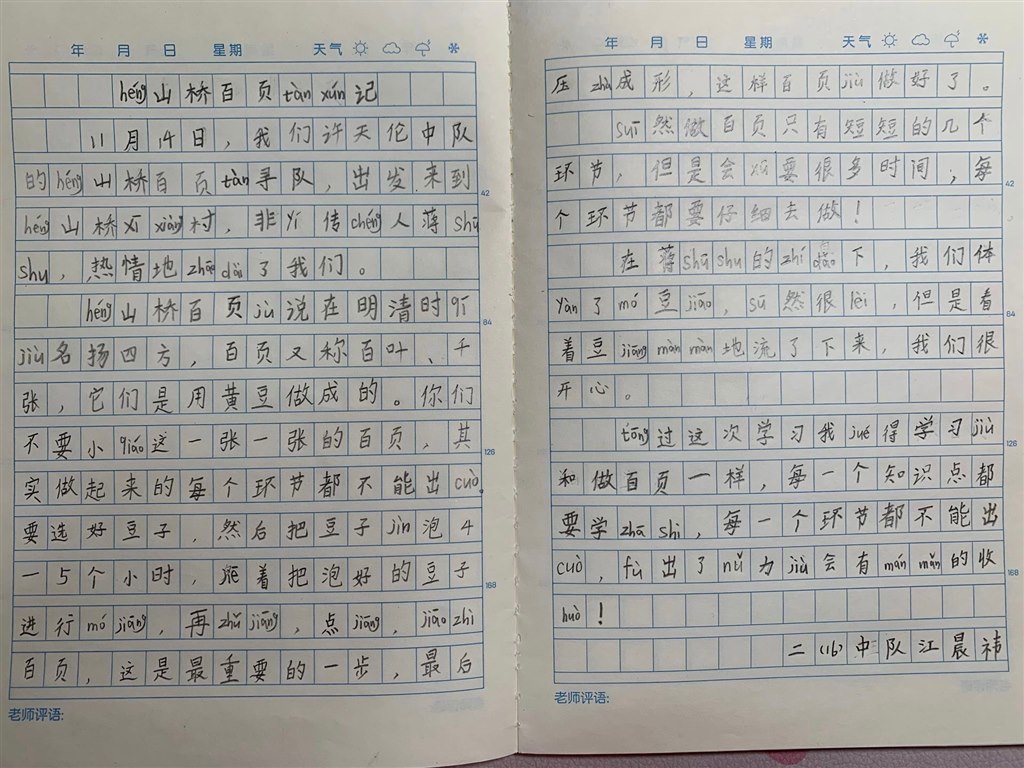 年 月 日 星期 天气
héng山桥百页tàn xún记
11月14日，我们许天伦中队
的héng山桥百页tàn寻队，出发来到
42
héng山桥xī xiàng村，非yí传chéng人蒋shū
shu，热情地zhāo dài了我们。
héng山桥百页jù说在明清时qī
84
jiù名扬四方，百页又称百叶、千
张，它们是用黄豆做成的。你们
不要小qiáo这一张一张的百页，其
126
实做起来的每个环节都不能出cuò
要选好豆子，然后把豆子jìn泡4
一5个小时，爬着把泡好的豆子
168
进行mó jiāng，再zhǔ jiāng，点jiāng，jiāo zhì
百页，这是最重要的一步，最后
老师评语:
年 月 日 星期 天气
压zhì成形，这样百页jiù做好了。
suī然做百页只有短短的几个
环节，但是会要很多时间，每
42
个环节都要仔细去做！
在蒋shū shu的zhǐ dǎo下，我们体
yàn了mó豆jiāo，suī然很lèi，但是看
84
着豆jiāng màn màn地流了下来，我们很
开心。
tōng过这次学习我jué得学习jiù
126
和做百页一样，每一个知识点都
要学zhā shi，每一个环节都不能出
cuò，fù出了nǔ力jiù会有mǎn mǎn的收
168
huò！
二(16)中队江晨祎
老师评语: